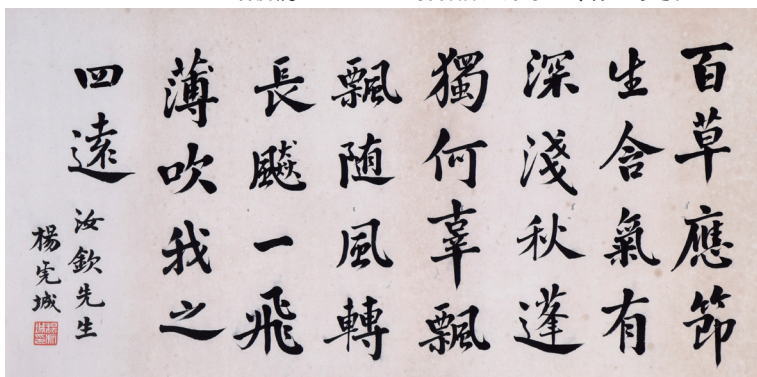 百草應節
生含氣有
深淺秋蓬
獨何辜飄
飄随風轉
長飈一飛
薄吹我之
四遠
汝欽先生
楊虎城